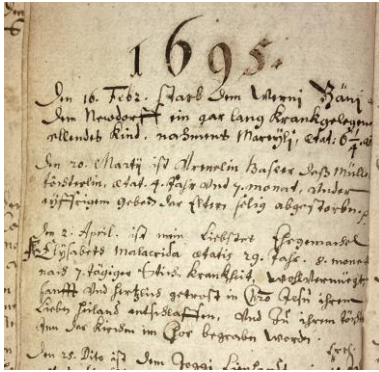 1695.
Den 16. Febr. starb dem Werni Bäni
Im Newdorff ein gar lang Krankgelegenes
ellendes Kind. nahmens Martheli, ætat: 6 1/4
Den 20. Martij ist Verenelin Haseer deß Müll
töchterlin, ætat. 4. Jahr und 7. monat, under
eyffrigem gebett der Elteren selig abgestorben.
Den 2. April. ist mein Liebste Ehegemahel
Elysabeth Malacrida ætatis 29. Jahr. 8. monat
nach 7. tägiger Krankheit, wolvernügt
sanfft und hertzlich getrost in Chro Jesu ihrem
Lieben Heiland entschlaffen, und zu ihrem
Inn der Kirchen im Chor begraben worden.
Den 25. Dito ist dem Joggi